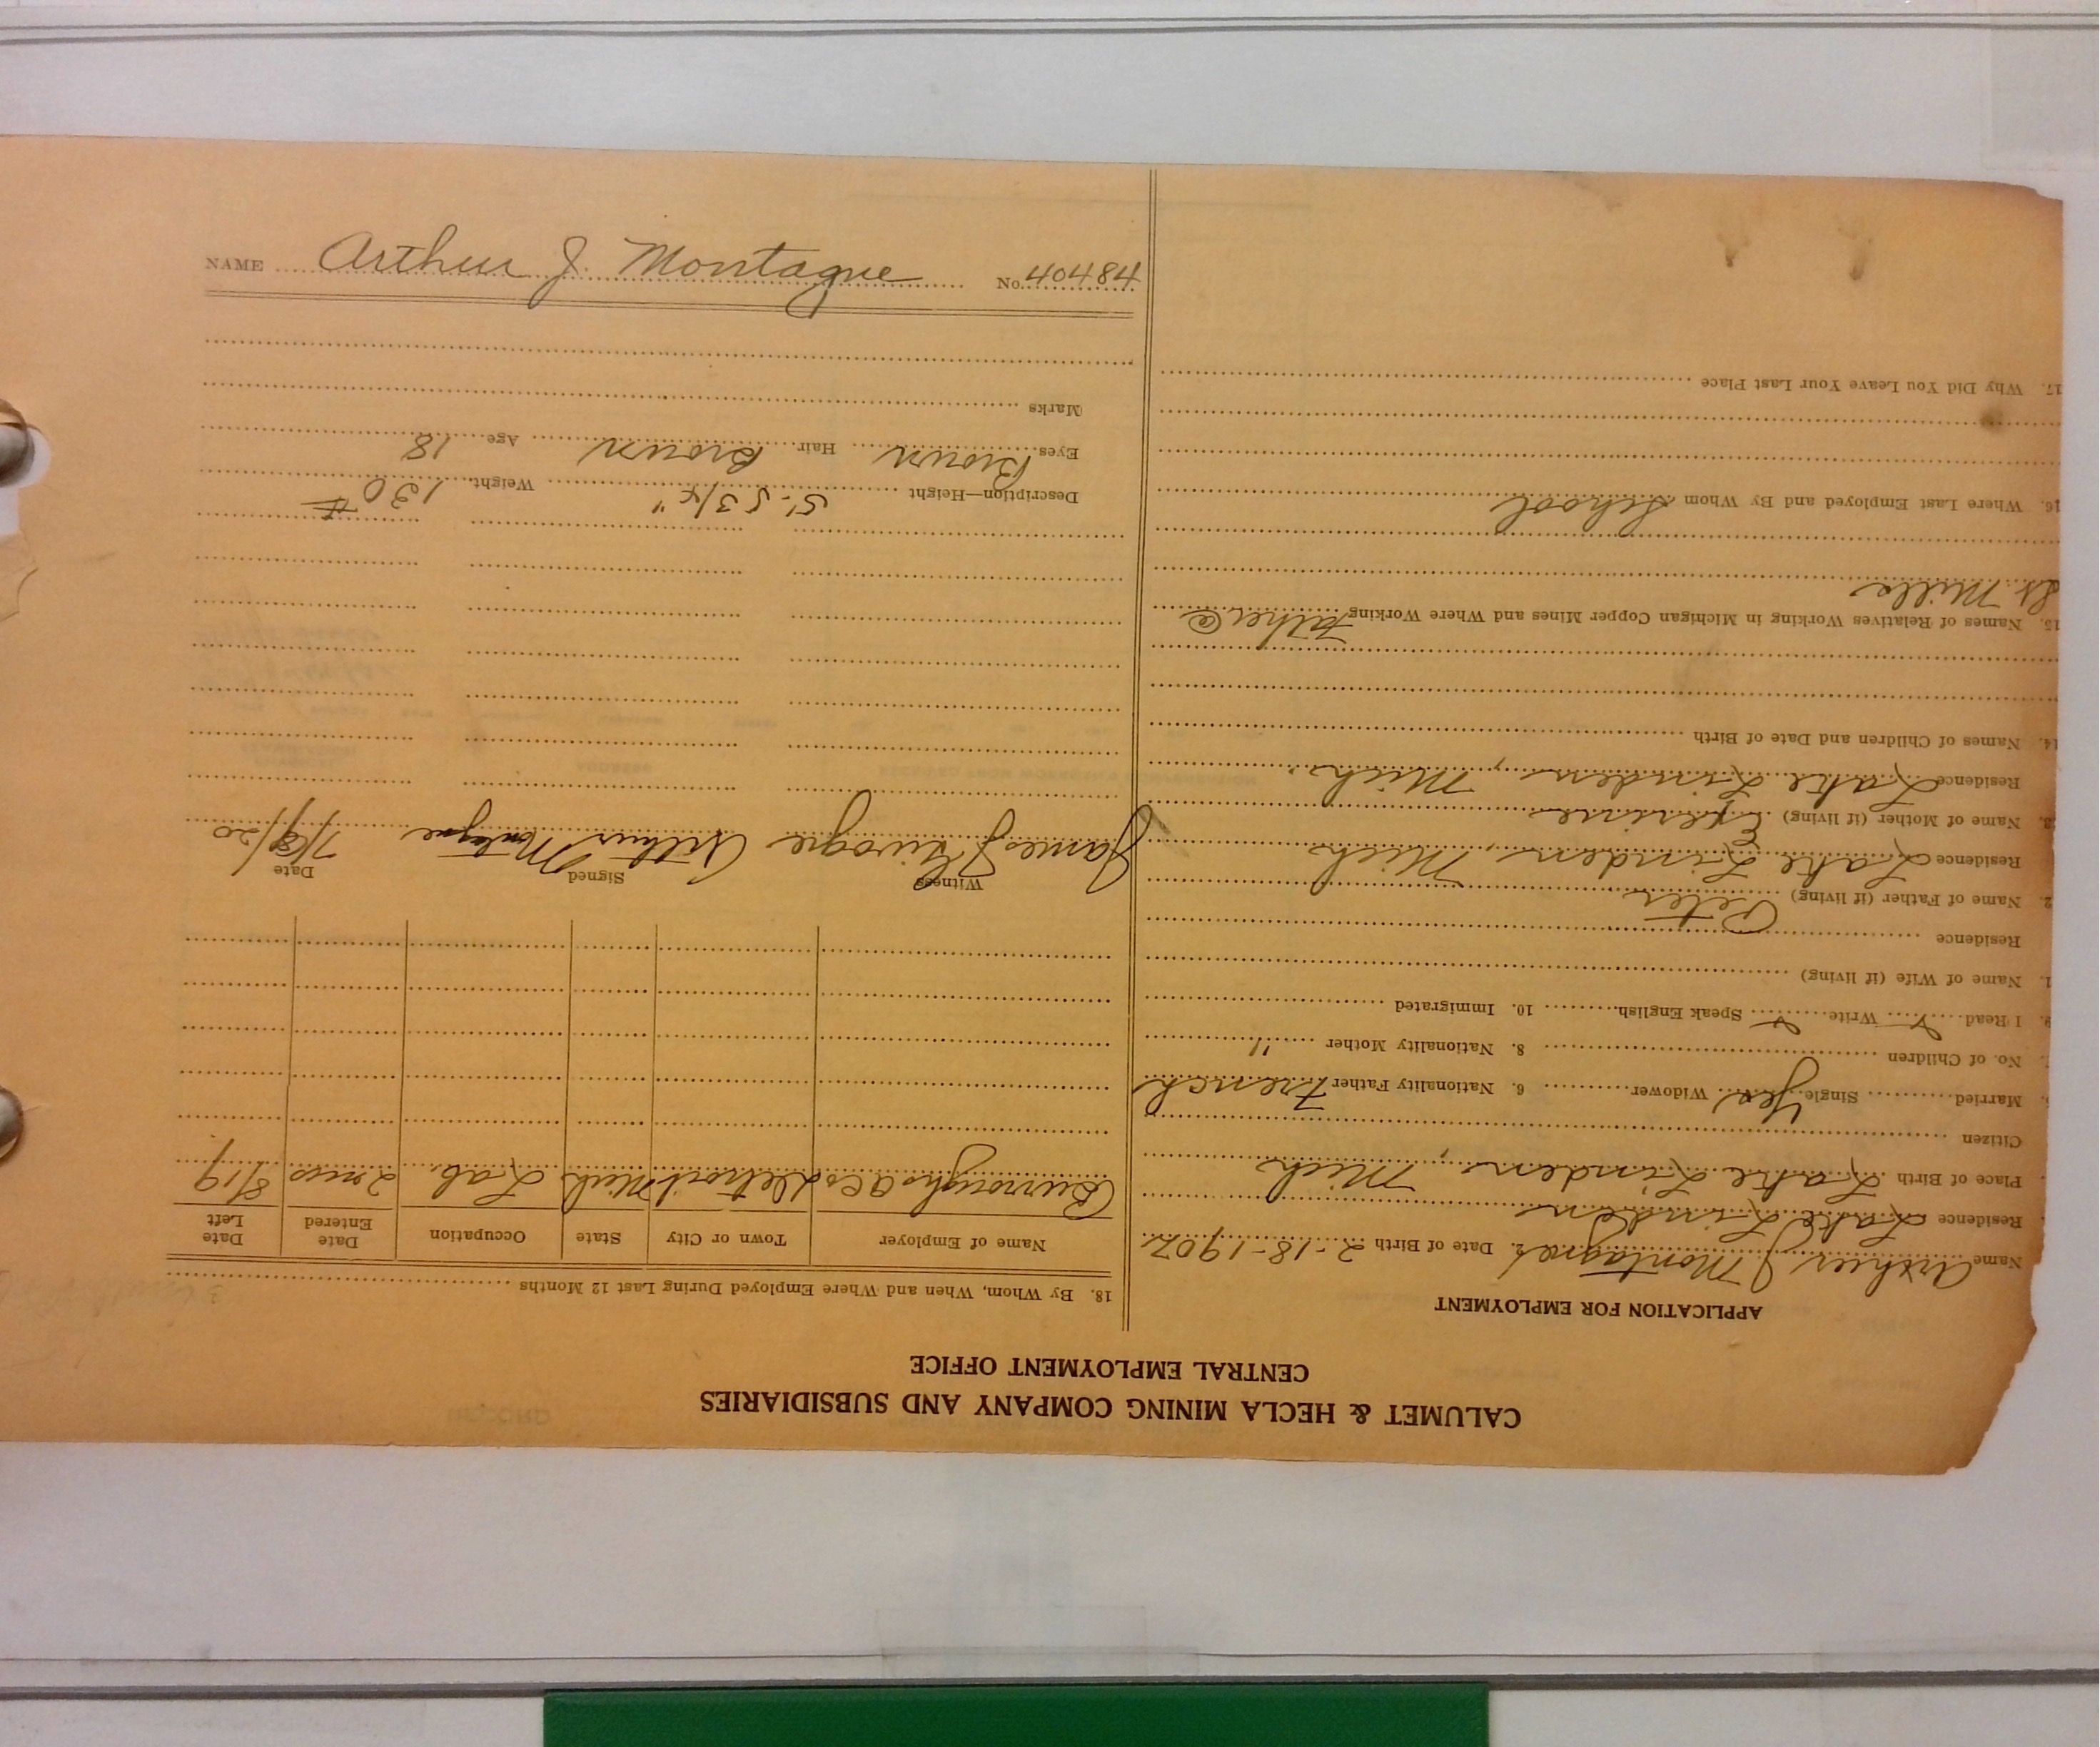 CALUMET & HECLA MINING COMPANY AND SUBSIDIARIES
CENTRAL EMPLOYMENT OFFICE
APPLICATION FOR EMPLOYMENT
Name Arthur J Montague 2. Date of Birth 2-18-1902
Residence Lake Linden
Place of Birth Lake Linden, Mich
Citizen
Married Single Yes Widower 6. Nationality Father French
No. of Children 8. Nationality Mother "
9. I Read ✓ Write ✓ Speak English 10. Immigrated
1. Name of Wife (if living)
Residence
2. Name of Father (if living) Peter
Residence Lake Linden, Mich
3. Name of Mother (if living)
Residence Lake Linden, Mich.
14. Names of Children and Date of Birth
15. Names of Relatives Working in Michigan Copper Mines and Where Working Father @
St. Mills
16. Where Last Employed and By Whom School
17. Why Did You Leave Your Last Place
18. By Whom, When and Where Employed During Last 12 Months
Name of Employer Town or City State Occupation Date Entered Date Left
Burroughs a Co Detroit Mich Lab. 2 mos 8/19
Witness Signed Date
James Arthur Montague 7/8/20
Description—Height 5'-5 3/4" Weight 130 #
Eyes Brown Hair Brown Age 18
Marks
NAME Arthur J. Montague No. 40484